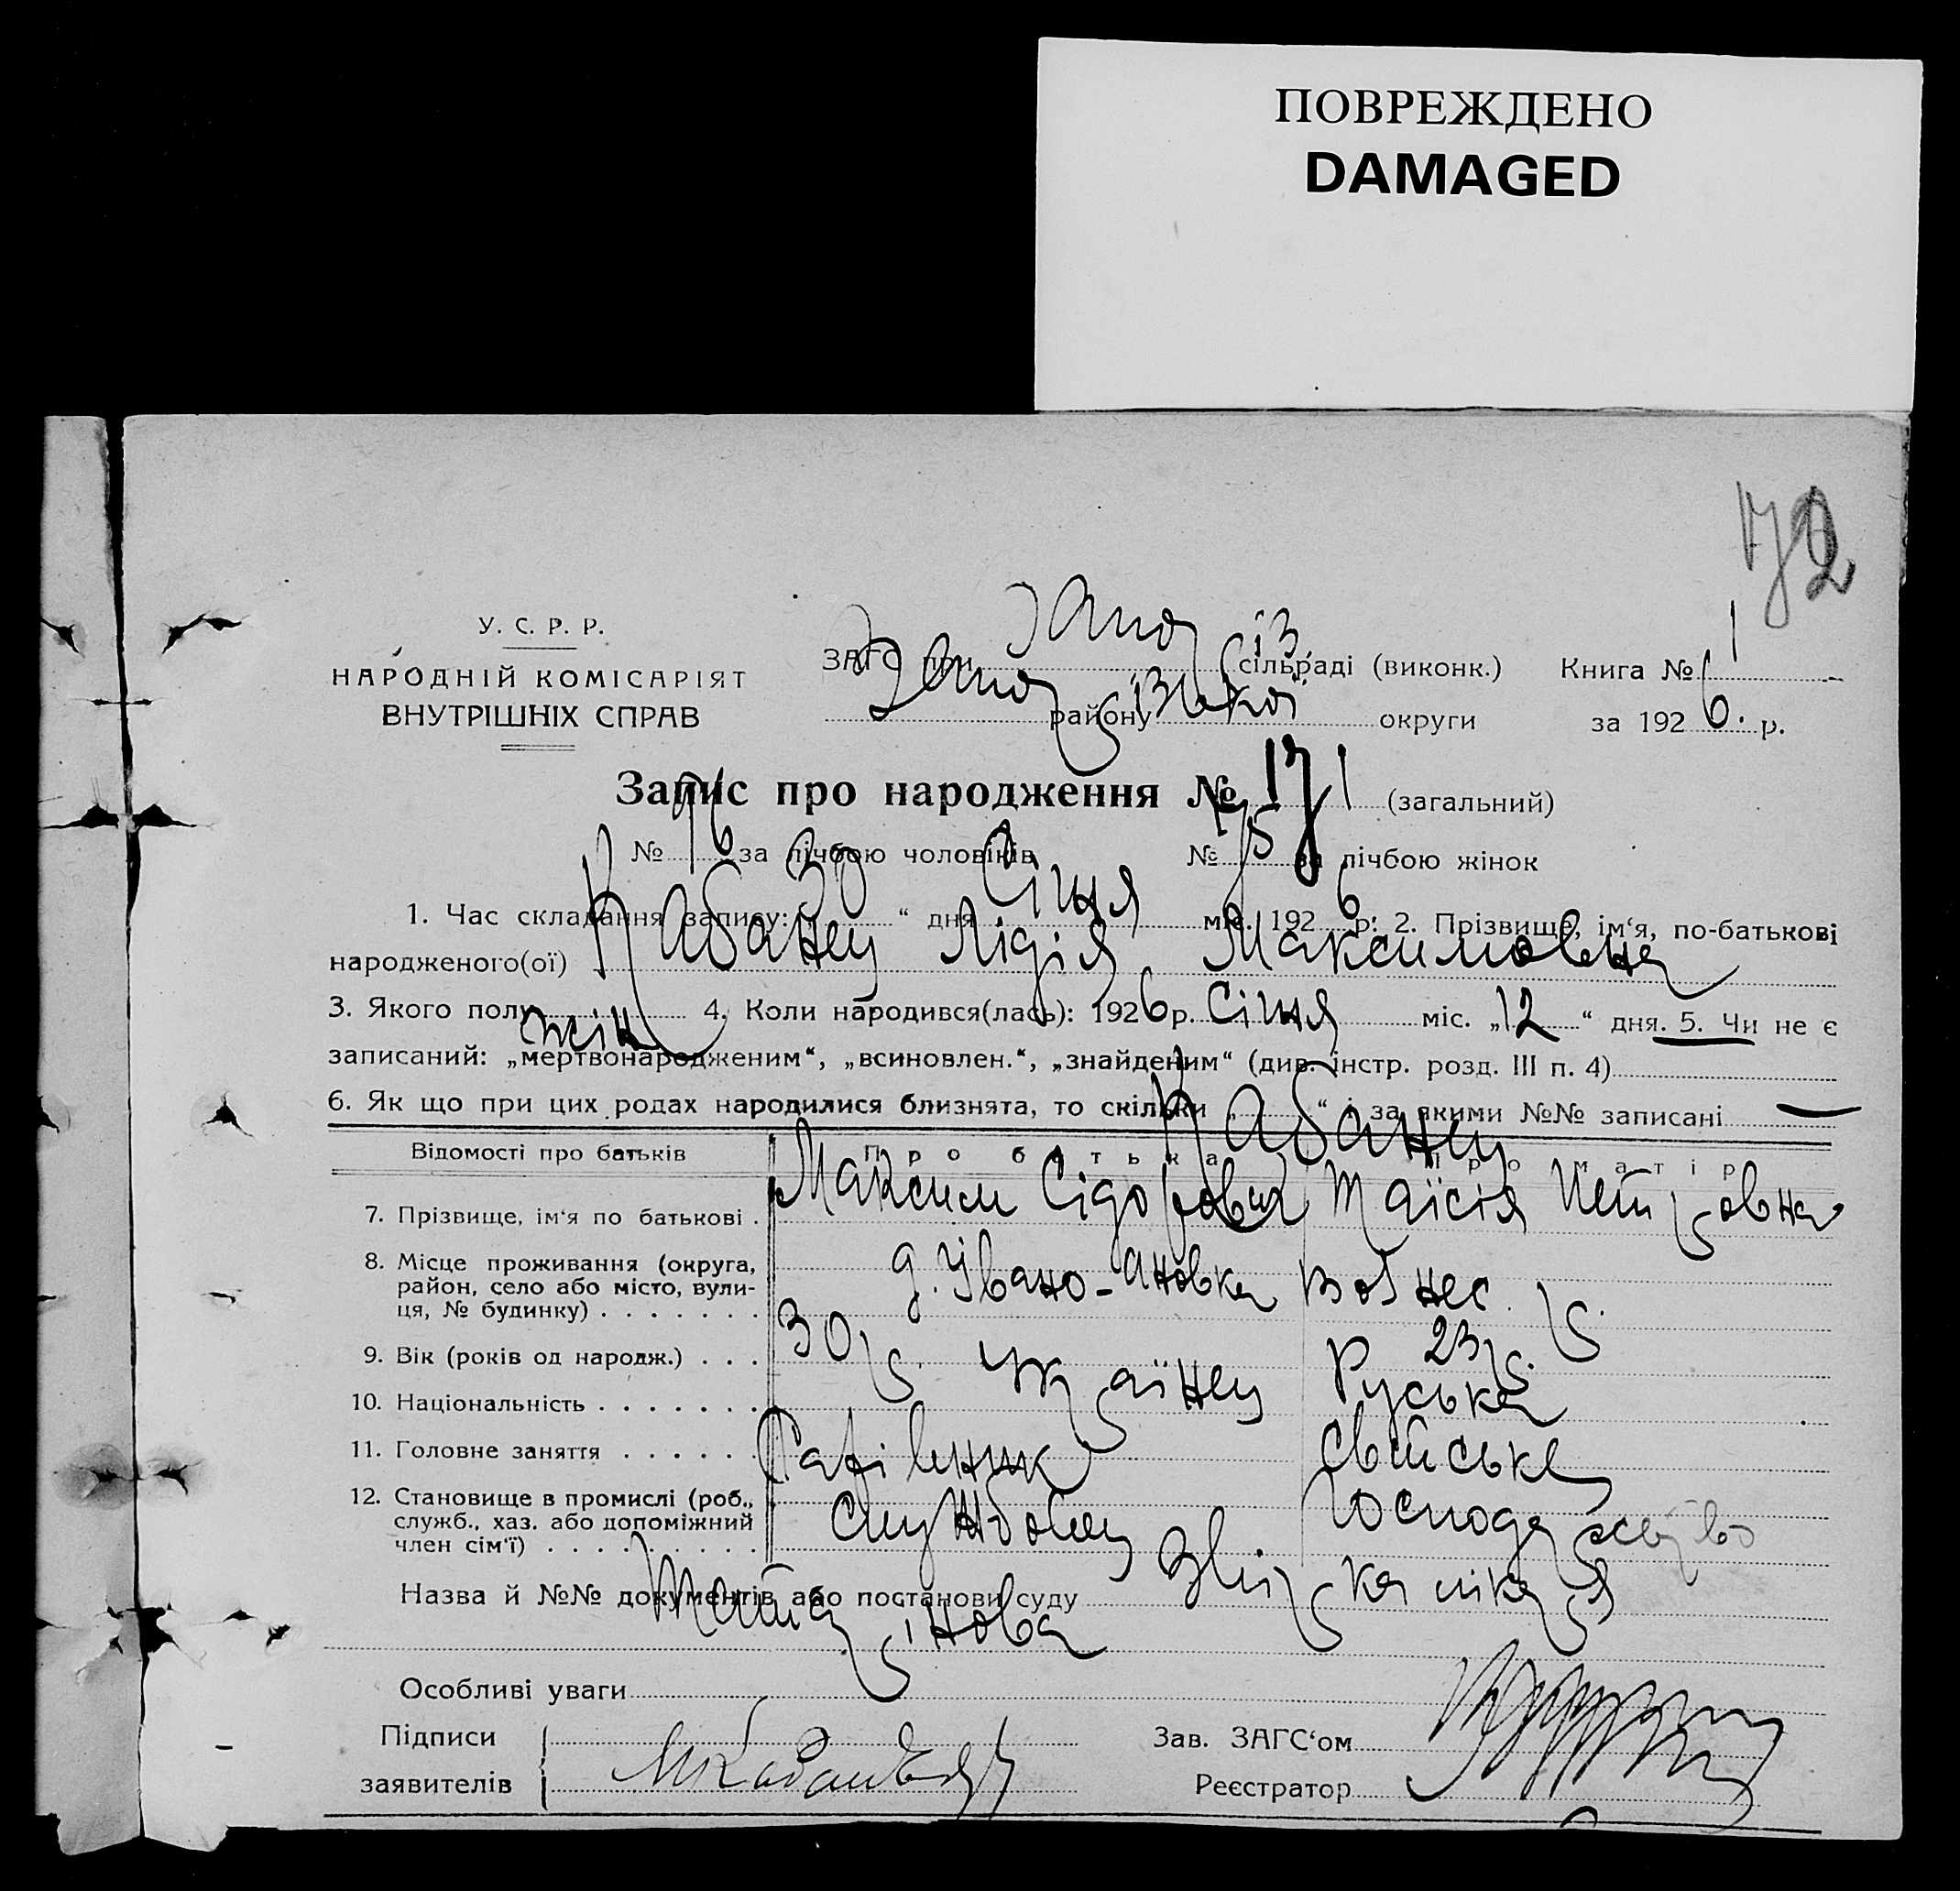 ПОВРЕЖДЕНО
DAMAGED
172
У. С. Р. Р.
НАРОДНІЙ КОМІСАРІЯТ
ВНУТРІШНІХ СПРАВ
ЗАГС при сільраді (виконк.) Книга № 1
району округи за 1926. р.
Запис про народження № 171 (загальний)
№ 96 за лічбою чоловіків № 75 за лічбою жінок
1. Час складання запису: 30 “ дня Січня міс. 1926 р. 2. Прізвище, ім‘я, по-батькові
народженого(ої) Кабанец Лідія Максимовна
3. Якого полу жін 4. Коли народився(лась): 1926 р. Січня міс. „12“ дня. 5. Чи не є
записаний: „мертвонародженим“, „всиновлен.“, „знайденим“ (див. інстр. розд. III п. 4)
6. Як що при цих родах народилися близнята, то скільки „ “ і за якими №№ записані —
Кабанец
Відомості про батьків Про батька Про матір
7. Прізвище, ім‘я по батькові . Максим Сідорович Таїсія Петровна
8. Місце проживання (округа,
район, село або місто, вули-
ця, № будинку) . . . . . . . Вознес. р.
9. Вік (років од народж.) . . . 30 р. 23 р.
10. Національність . . . . . . . Украінец Руська
11. Головне заняття . . . . . . свійське
12. Становище в промислі (роб.,
служб., хаз. або допоміжний
член сім‘ї) . . . . . . . . . Службовец господарство
Назва й №№ документів або постанови суду лікаря
Особливі уваги
Підписи
заявителів
Зав. ЗАГС‘ом
Реєстратор